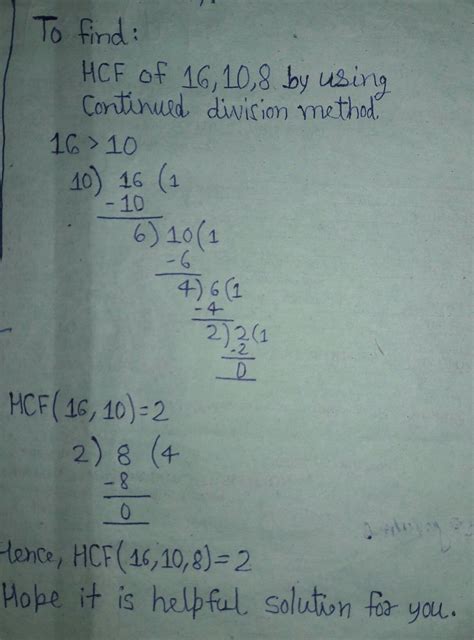 To find:
HCF of 16,10,8 by using
Continued division method.
16 > 10
10) 16 (1
-10
6) 10 (1
-6
4) 6 (1
-4
2) 2 (1
-2
0
HCF(16,10)=2
2) 8 (4
-8
0
Hence, HCF(16,10,8)=2
Hope it is helpful solution for you.